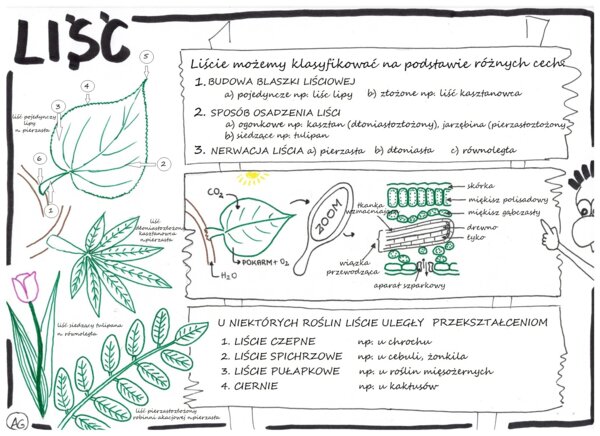 LIŚĆ
Liście możemy klasyfikować na podstawie różnych cech:
1. BUDOWA BLASZKI LIŚCIOWEJ
a) pojedyncze np. liśc lipy b) złożone np. liść kasztanowca
2. SPOSÓB OSADZENIA LIŚCI
a) ogonkowe np. kasztan (dłoniastozłożony), jarzębina (pierzastozłożony
b) siedzące np. tulipan
3. NERWACJA LIŚCIA a) pierzasta b) dłoniasta c) równoległa
5
4
3
liść pojedynczy
lipy
n pierzasta
2
6
1
liść
dłoniastozłożony
kasztanowca
n.pierzasta
liść siedzący tulipana
n równoległa
liść pierzastozłożony
robinni akacjowej n.pierzasta
AG
CO2
H2O
POKARM + O2
ZOOM
tkanka
wzmacniająca
wiązka
przewodząca
aparat szparkowy
skórka
miękisz polisadowy
miękisz gąbczasty
drewno
łyko
U NIEKTÓRYCH ROŚLIN LIŚCIE ULEGŁY PRZEKSZTAŁCENIOM
1. LIŚCIE CZEPNE np. u chrochu
2. LIŚCIE SPICHRZOWE np. u cebuli, żonkila
3. LIŚCIE PUŁAPKOWE np. u roślin mięsożernych
4. CIERNIE np. u kaktusów